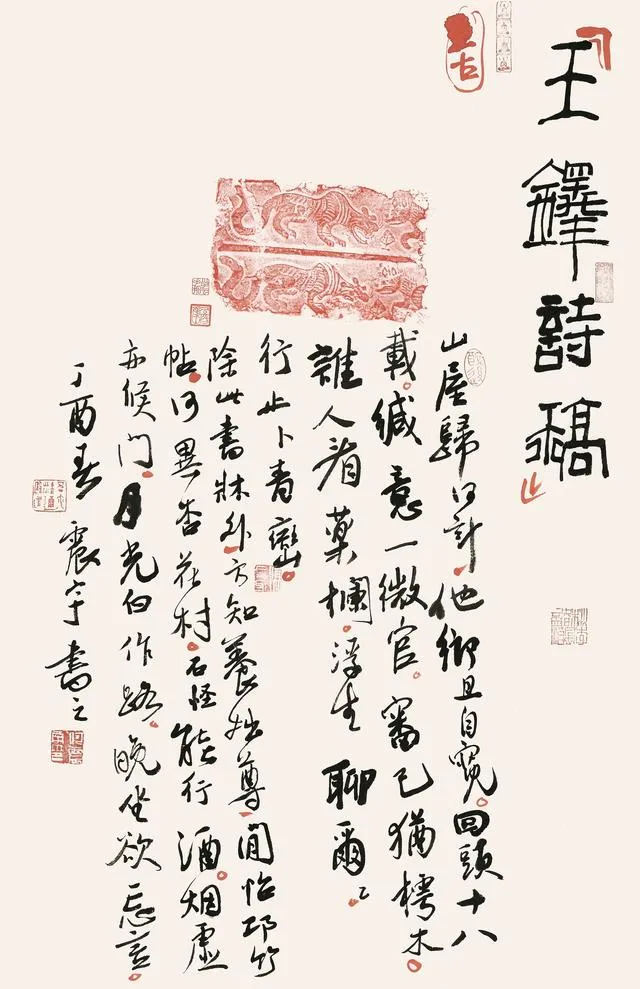 王鐸詩稿
山屋歸何計他鄉且自寬回頭十八
載緘意一微官審己猶樗木
誰人看藥欄浮生聊爾〻
行止卜青巒
除此書牀外方知養拙尊閒怡邛竹
帖何異杏花村石怪能行酒烟虛
亦候門月光白作路晚坐欲忘言
丁酉春震宇書之